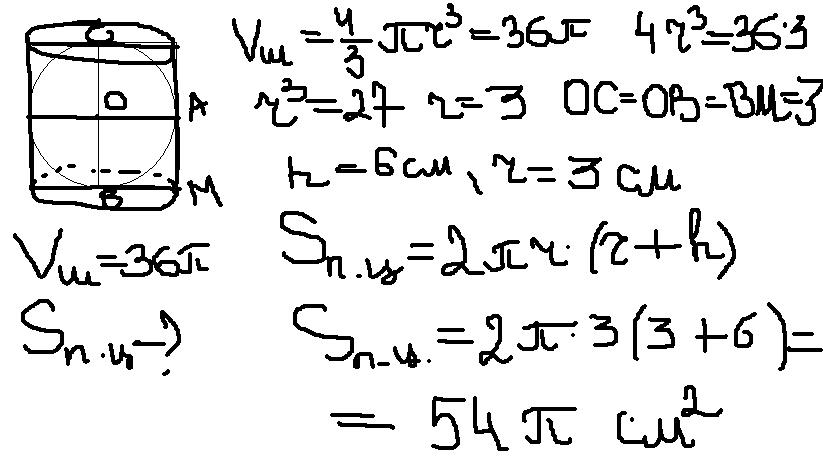 C
O
A
B
M
Vш = 4/3 πr³ = 36π 4r³ = 36·3
r³ = 27 r = 3 OC = OB = BM = 3
h = 6 см, r = 3 см
Vш = 36π
Sп.ц = 2πr·(r + h)
Sп.ц – ?
Sп.ц. = 2π·3(3 + 6) =
= 54π см²